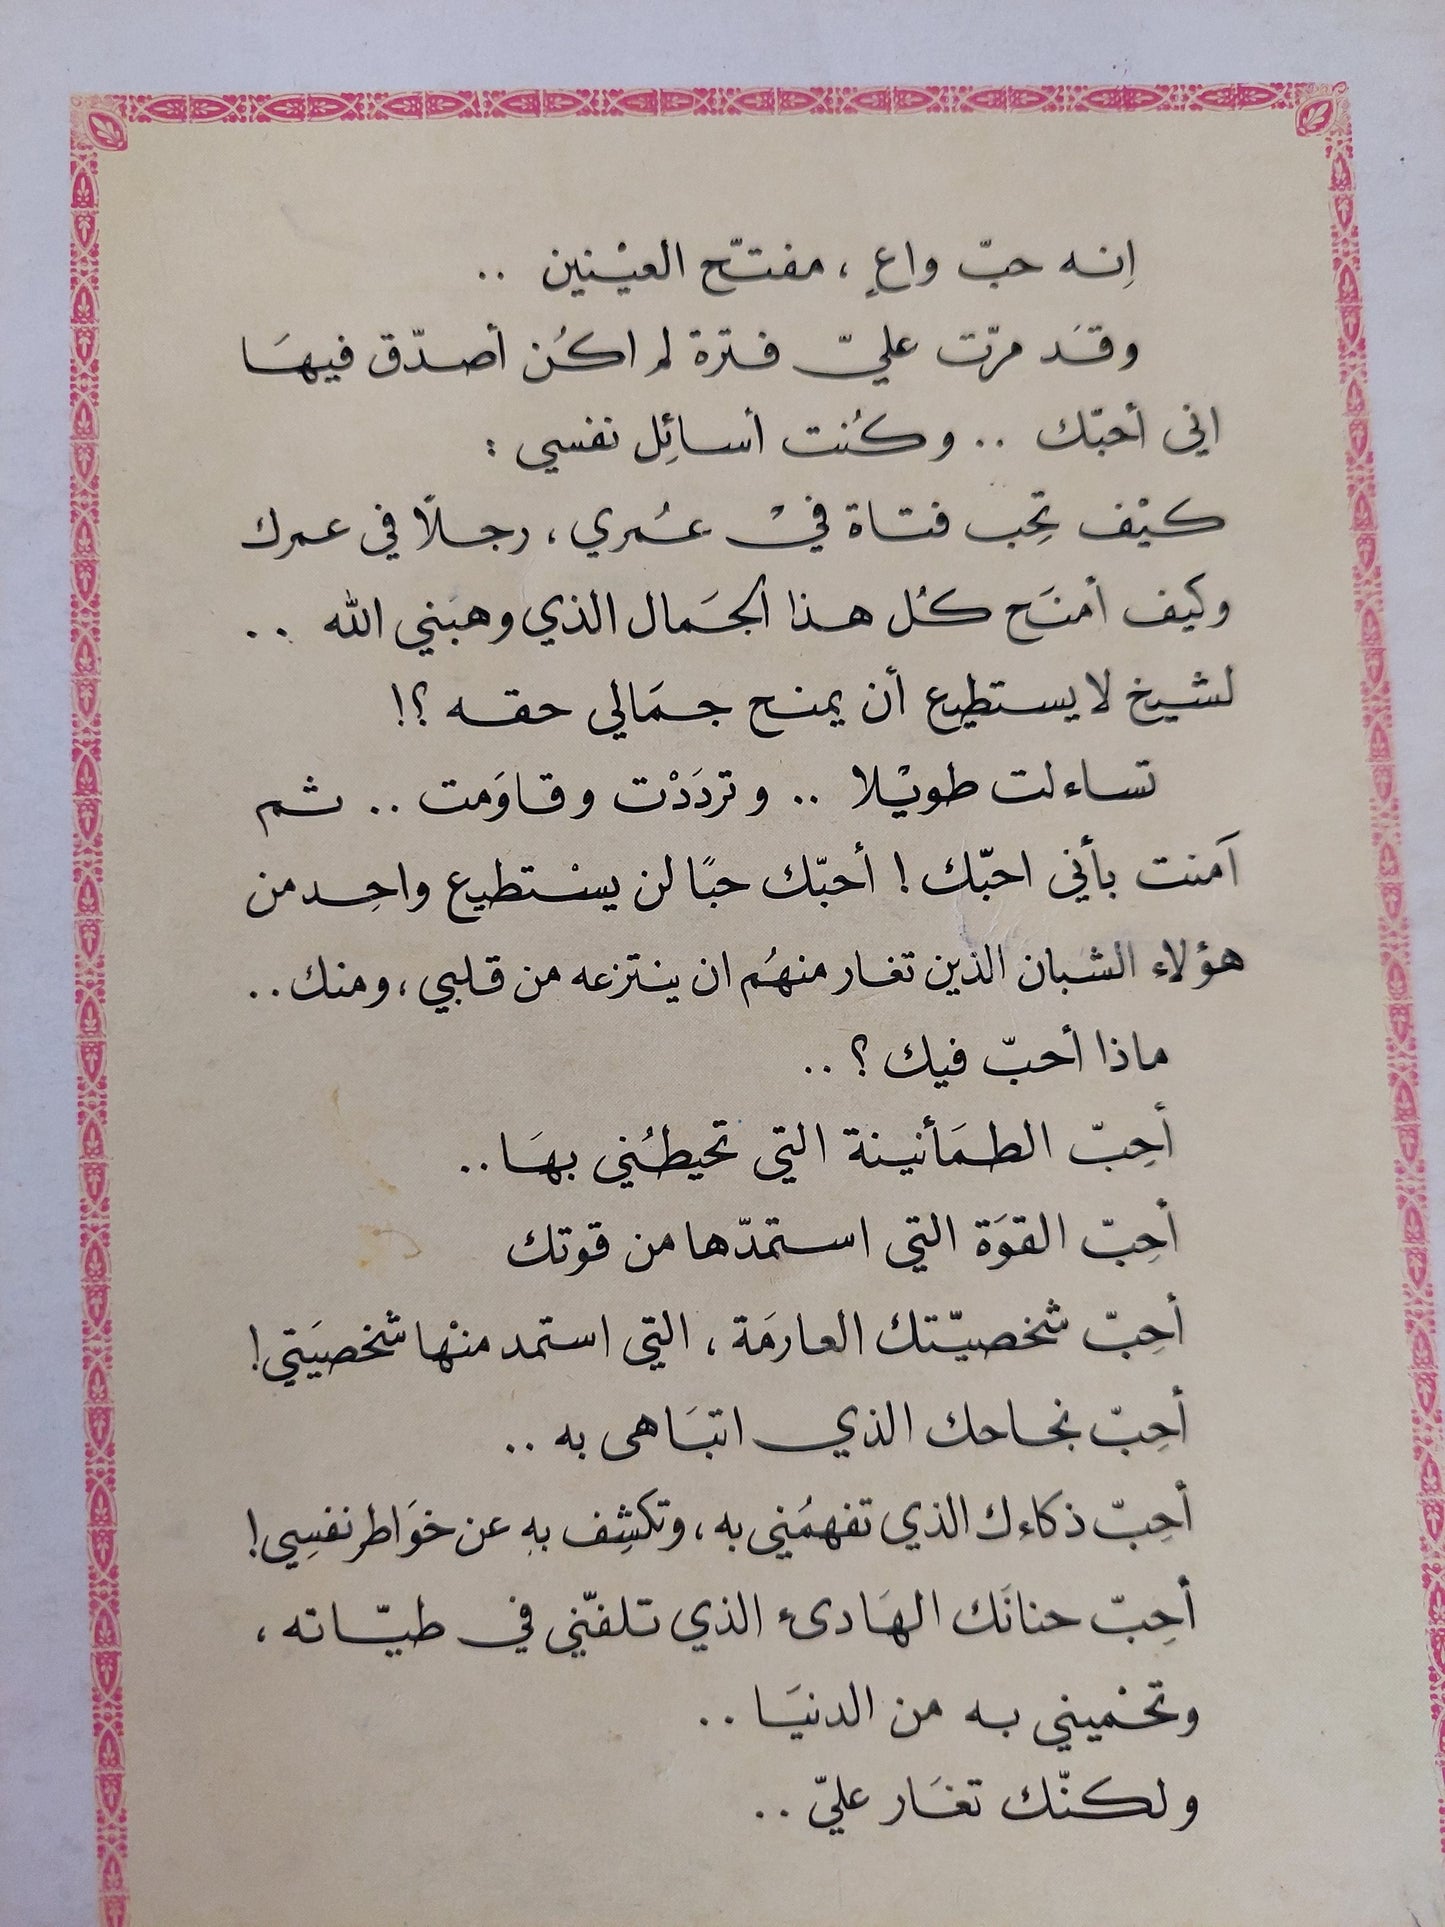 إنه حبّ واعٍ ، مفتّح العيْنين ..
وقَد مرّت عليّ فترة لم اكُن أصدّق فيهَا
اني أحبّك .. وكُنت أسائِل نفسي :
كيْف تحِب فتاة فيْ عُمري ، رجلًا في عمرك
وكيف أمنَح كُل هذا الجَمال الذي وهبَني الله ..
لشيخ لا يستطيع أن يمنح جمَالي حقه ؟!
تساءلت طويْلا .. وتردَدْت وقاوَمت .. ثم
آمنت بأني احبّك ! أحبّك حبًا لن يسْتطيع واحِد من
هؤلاء الشبان الذين تغار منهُم ان ينتزعه من قلبي ، ومنك ..
ماذا أحبّ فيك ؟ ..
أحِبّ الطمَأنينة التي تحيطُني بهَا ..
أحِبّ القوَة التي استمدّها من قوتك
أحِبّ شخصيّتك العارمَة ، التي استمد منْها شخصيَتي !
أحِبّ نجاحك الذي اتبَاهى به ..
أحِبّ ذكاءك الذي تفهمُني به ، وتكشِف بهِ عن خوَاطر نفسِي !
أحِبّ حنانَك الهَادىء الذي تلفّني في طيّاته ،
وتحْميني به من الدنيَا ..
ولكنّك تغَار عليّ ..